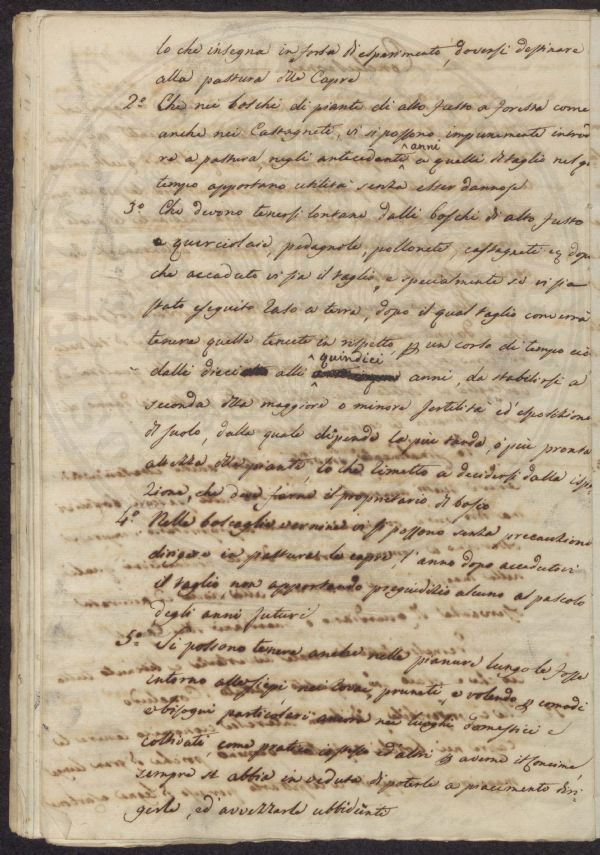 lo che insegna in forza di esperimento, doversi destinare
alla pastura delle Capre
2.° Che nei boschi di piante di alto fusto a foresta come
anche nei Castagneti, vi si possono impunemente
re a pastura, negli antecedenti anni a quelli di taglio nel
tempo apportano utilità senza esser dannose
3.° Che devono tenersi lontane dalli boschi di alto fusto
e querciolaie, pedagnole, pollonete, castagnete dopo
che accaduto vi sia il taglio, e specialmente se vi sia
stato eseguito raso a terra, dopo il qual taglio converrà
tenere quelle tenute in rispetto p un corso di tempo cio
dalli dieci alli quindici anni, da stabilirsi a
seconda della maggiore o minore fertilità ed esposizione
di suolo, dalla quale dipende la più tarda, o più pronta
altezza delle piante, lo che rimetto a decidersi dalla ispe
zione, che deve farne il proprietario di bosco
4.° Nelle boscaglie vernine vi si possono senza precauzione
dirigere in pastura le capre, l'anno dopo accadutovi
il taglio non apportando pregiudizio alcuno al pascolo
degli anni futuri
5.° Si possono tenere anche nelle pianure lungo le fosse
intorno alle siepi nei pruneti, e volendo p comodi
e bisogni particolari ancora nei luoghi domestici e
coltivati come pratica ed altri p averne il Concime
sempre si abbia in veduta di poterle a piacimento diri=
gerle, ed avvezzarle ubbidienti